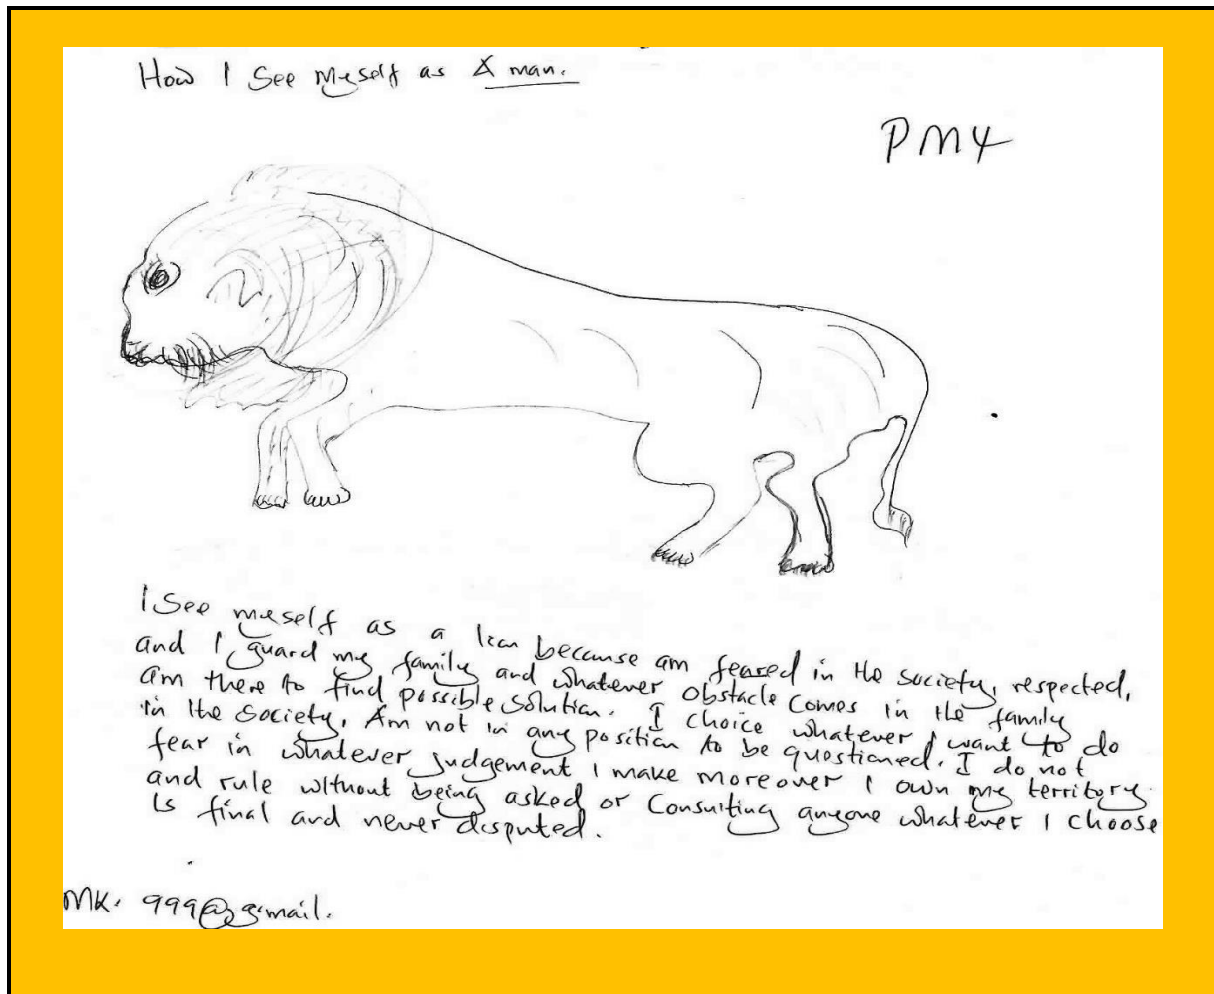 How I See myself as A man.
PM4
I See myself as a lion because am feared in the society, respected,
and I guard my family and whatever obstacle comes in the family
am there to find possible solution. I choice whatever I want to do
in the society. Am not in any position to be questioned. I do not
fear in whatever judgement I make moreover I own my territory
and rule without being asked or Consulting anyone whatever I choose
is final and never disputed.
MK. 999@gmail.